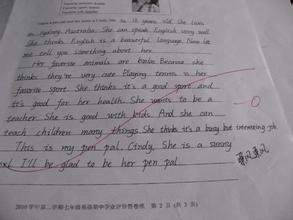 is 13 years old. She lives
in Sydney, Australia. She can speak English very well
She thinks English is a beautiful language. Now let
me tell you something about her.
Her favorite animals are koala. Because she
thinks they're very cute. Playing tennis is her
favorite sport. She thinks it's a good sport and
it's good for her health. She wants to be a
teacher. She is good with kids. And she can
teach children many things. She think it's a busy but interesting job.
This is my pen pal, Cindy. She is a sunny
girl. I'll be glad to be her pen pal.